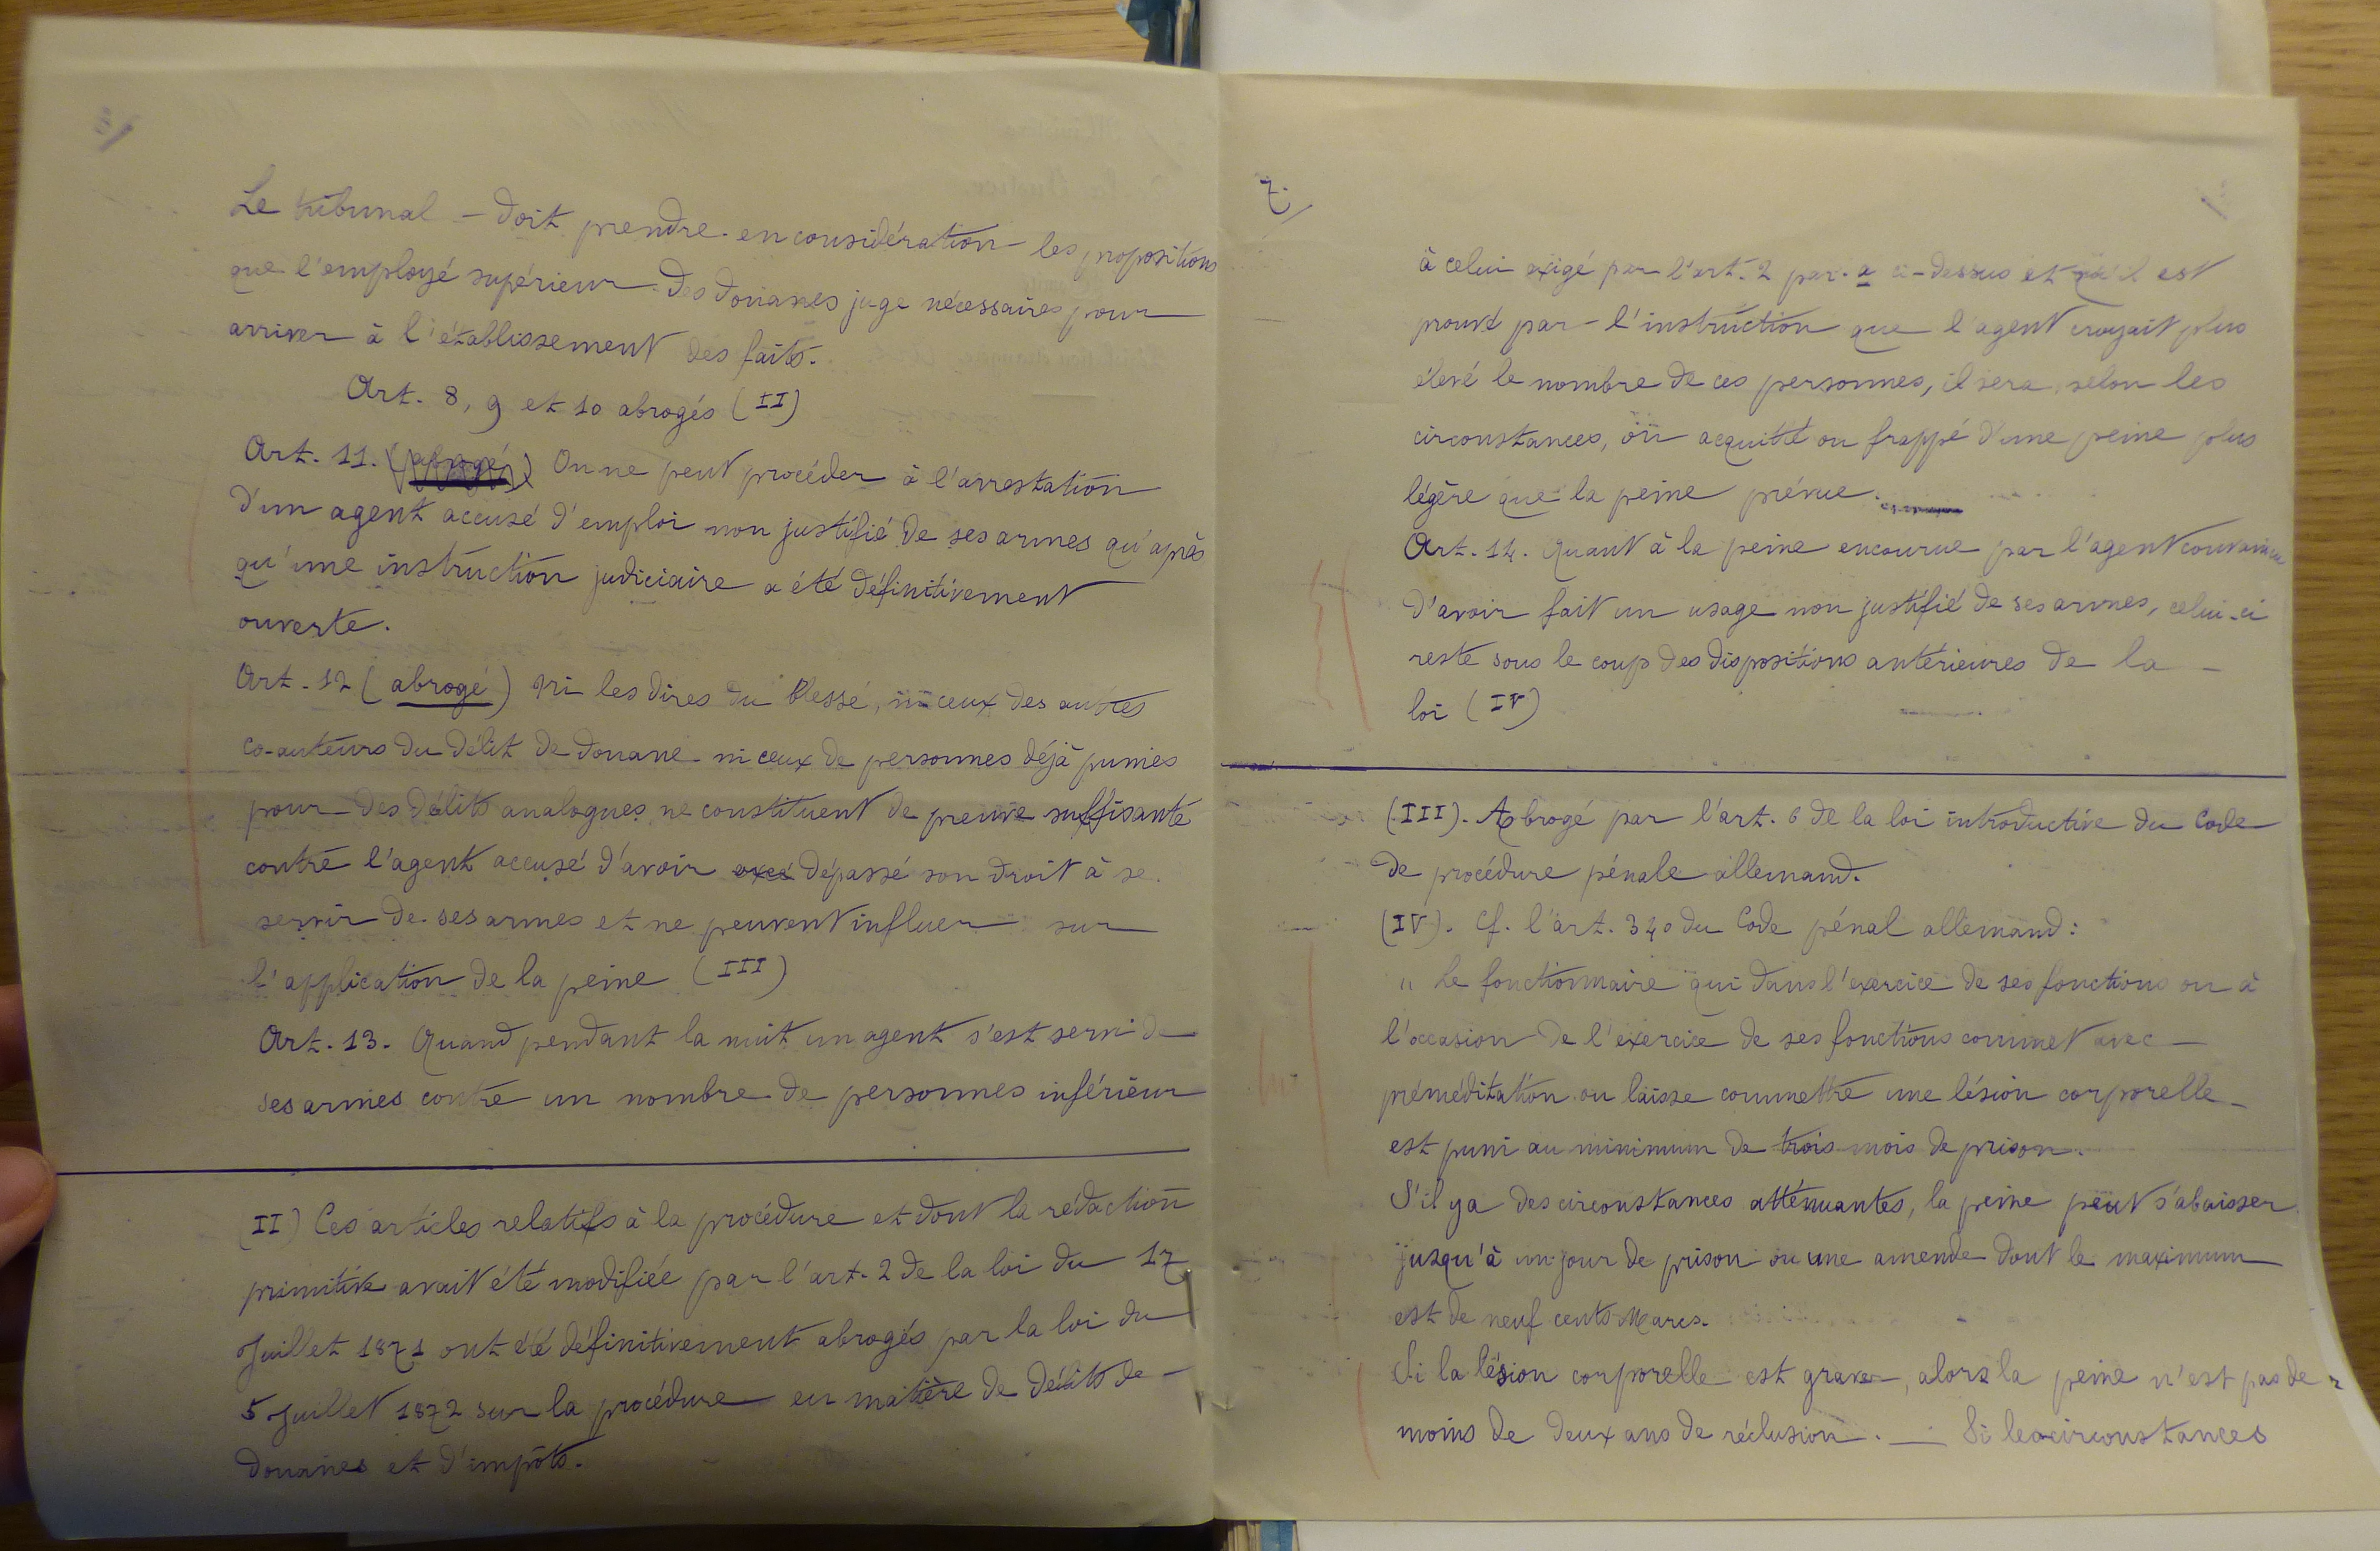 Le tribunal - doit prendre en considération les propositions
que l'employé supérieur des douanes juge nécessaires pour
arriver à l'établissement des faits.
Art. 8, 9 et 10 abrogés (II)
Art. 11. (abrogé) On ne peut procéder à l'arrestation
d'un agent accusé d'emploi non justifié de ses armes qu'après
qu'une instruction judiciaire a été définitivement
ouverte.
Art. 12 (abrogé) Ni les dires du blessé, ni ceux des autres
co-auteurs du délit de douane ni ceux de personnes déjà punies
pour des délits analogues ne constituent de preuve suffisante
contre l'agent accusé d'avoir dépassé son droit à se
servir de ses armes et ne peuvent influer sur
l'application de la peine (III)
Art. 13. Quand pendant la nuit un agent s'est servi de
ses armes contre un nombre de personnes inférieur
II) Ces articles relatifs à la procédure et dont la rédaction
primitive avait été modifiée par l'art. 2 de la loi du 17
Juillet 1871 ont été définitivement abrogés par la loi du
5 Juillet 1872 sur la procédure en matière de délits de
douanes et d'impôts.
7/
à celui exigé par l'art. 2 par. a ci-dessus et qu'il est
prouvé par l'instruction que l'agent croyait plus
élevé le nombre de ces personnes, il sera, selon les
circonstances, ou acquitté ou frappé d'une peine plus
légère que la peine prévue.
Art. 14. Quant à la peine encourue par l'agent convaincu
d'avoir fait un usage non justifié de ses armes, celui-ci
reste sous le coup des dispositions antérieures de la -
loi (IV)
(III). Abrogé par l'art. 6 de la loi introductive du Code
de procédure pénale allemand.
(IV). Cf. l'art. 340 du Code pénal allemand :
" Le fonctionnaire qui dans l'exercice de ses fonctions ou à
l'occasion de l'exercice de ses fonctions commet avec -
préméditation ou laisse commettre une lésion corporelle -
est puni au minimum de trois mois de prison.
S'il y a des circonstances atténuantes, la peine peut s'abaisser
jusqu'à un jour de prison ou une amende dont le maximum
est de neuf cents Marcs.
Si la lésion corporelle est grave, alors la peine n'est pas de
moins de deux ans de réclusion. — Si les circonstances